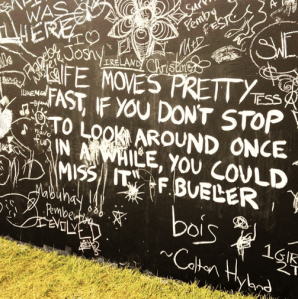 WAS
HERE
I ♡
Joshy
IRELAND
Christine
"LIFE MOVES PRETTY
FAST, IF YOU DON'T STOP
TO LOOK AROUND ONCE
IN A WHILE, YOU COULD
MISS IT" -F. BUELLER
TESS
Mabuhay
Pemberton
bois
~Colton Hyland
1GIRL